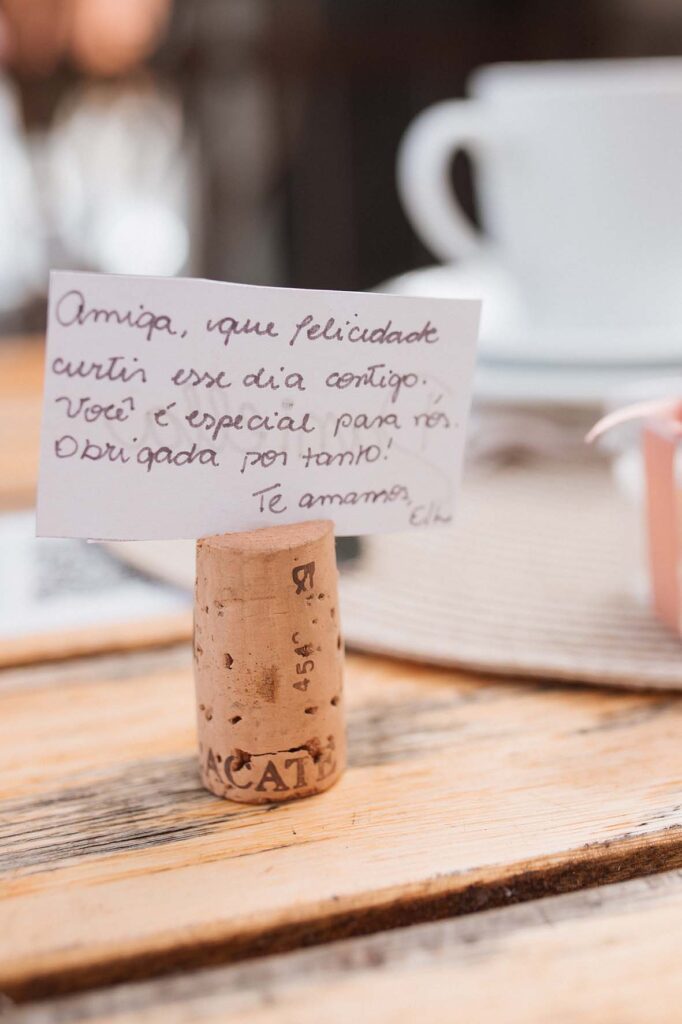 Amiga, que felicidade
curtir esse dia contigo.
Você é especial para nós.
Obrigada por tanto!
Te amamos,
454
ACATE